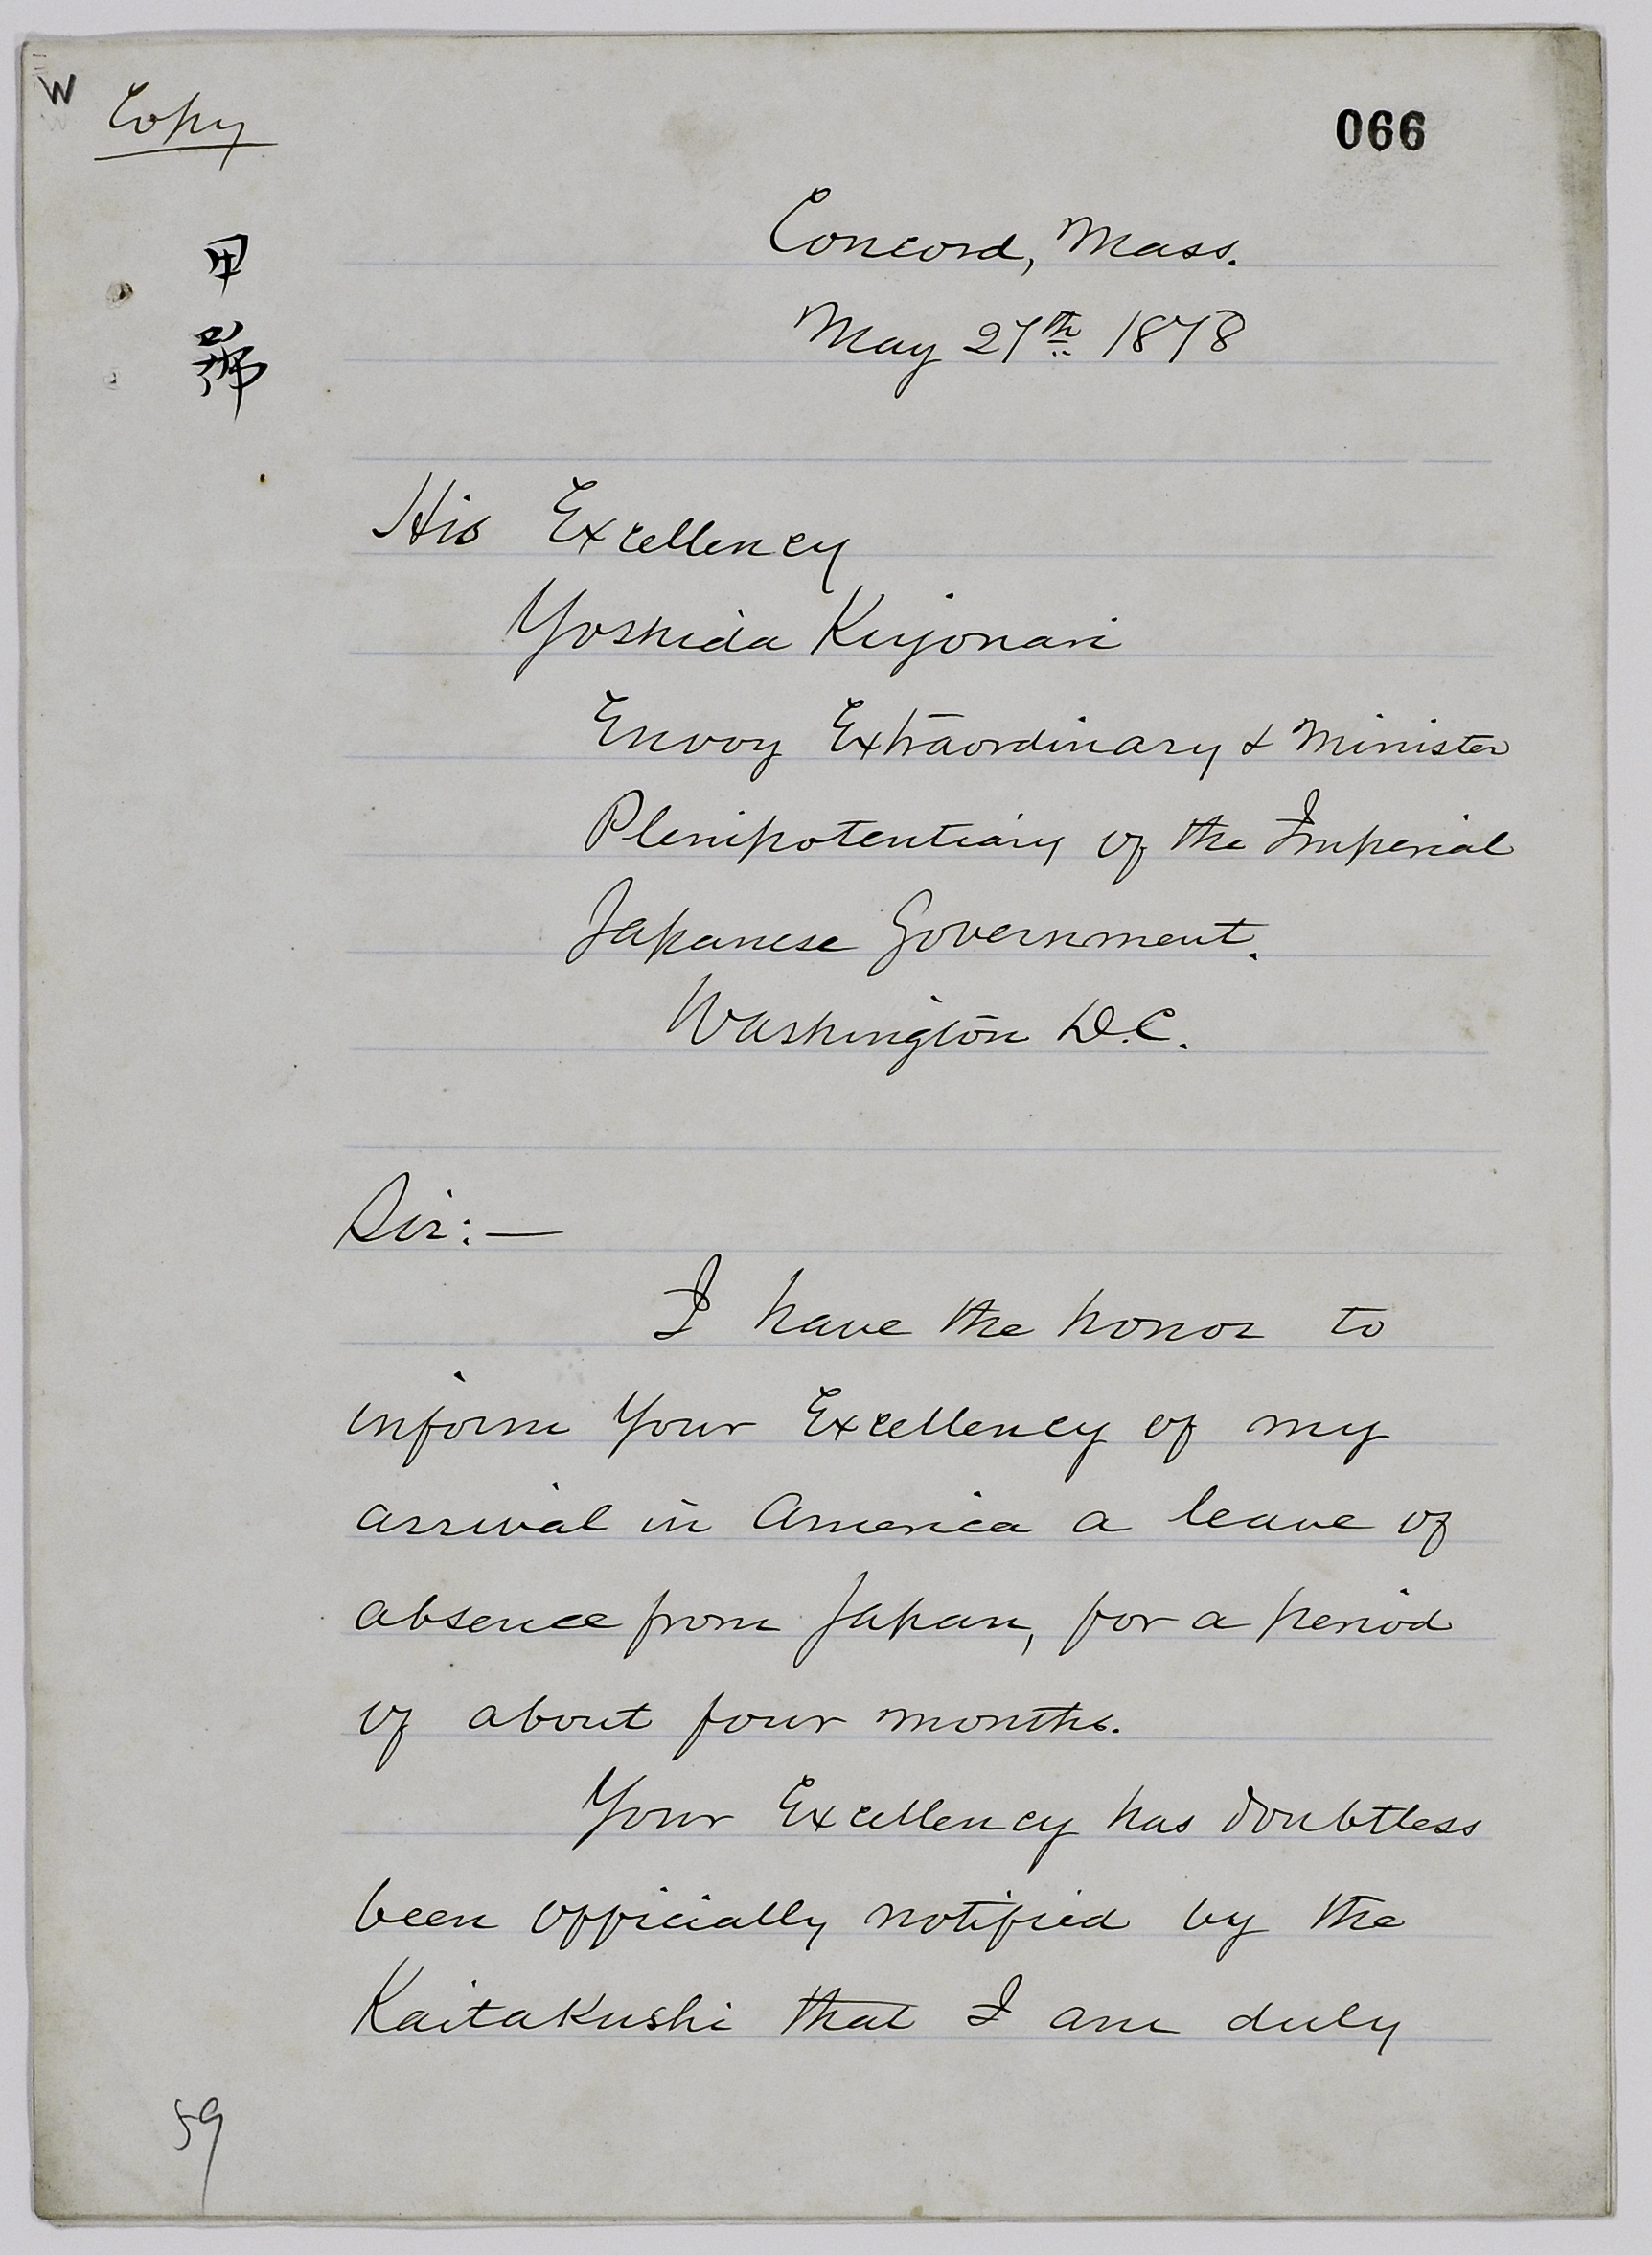 W
Copy
066
甲
號
Concord, Mass.
May 27th 1878
His Excellency
Yoshida Kiyonari
Envoy Extraordinary & Minister
Plenipotentiary of the Imperial
Japanese Government.
Washington D.C.
Sir:—
I have the honor to
inform Your Excellency of my
arrival in America a leave of
absence from Japan, for a period
of about four months.
Your Excellency has doubtless
been officially notified by the
Kaitakushi that I am duly
59